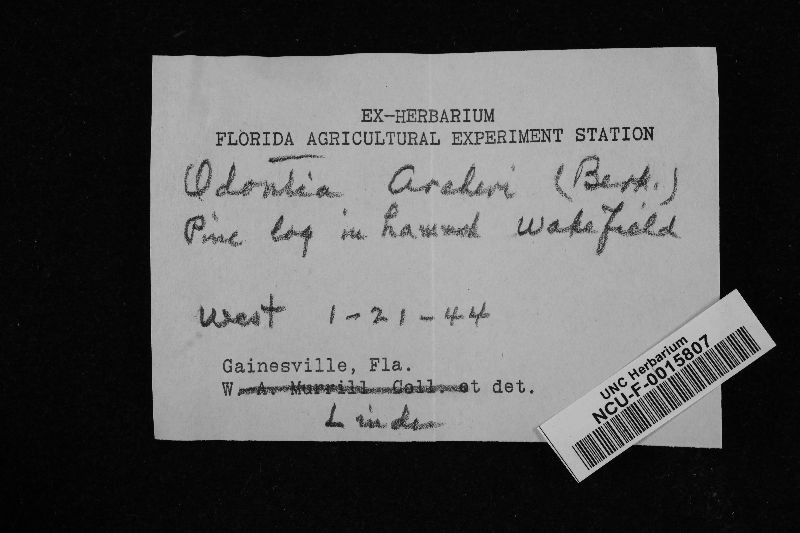 EX-HERBARIUM
FLORIDA AGRICULTURAL EXPERIMENT STATION
Odontia Archeri (Berk.)
Pine log in hammock Wakefield
West 1-21-44
Gainesville, Fla.
W. A. Murrill Coll. et det.
Linder
UNC Herbarium
NCU-F-0015807